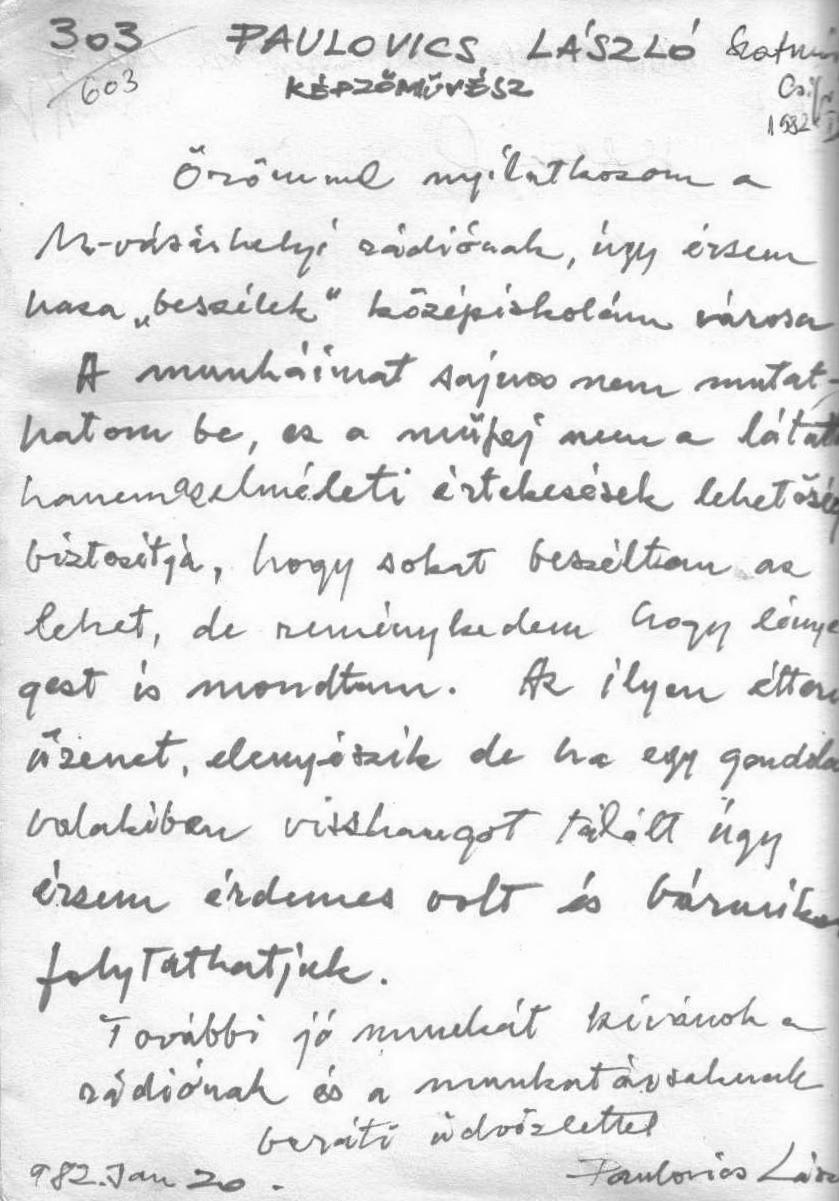 303 PAULOVICS LÁSZLÓ Szatmá
603 KÉPZŐMŰVÉSZ
1982
Örömmel nyilatkozom a
M-vásárhelyi rádiónak, úgy érzem
haza „beszélek" középiskolám városa
A munkáimat sajnos nem mutat-
hatom be, ez a műfaj nem a látat
hanem az elméleti értekezések lehetőség
biztosítja, hogy sokat beszéltem az
lehet, de reménykedem hogy lénye
gest is mondtam. Az ilyen étter
üzenet, elenyészik de ha egy gondola
valakiben visszhangot talált úgy
érzem érdemes volt és bármiko
folytathatjuk.
További jó munkát kívánok a
rádiónak és a munkatársaknak
baráti üdvözlettel
982. Jan 20. Paulovics Lász